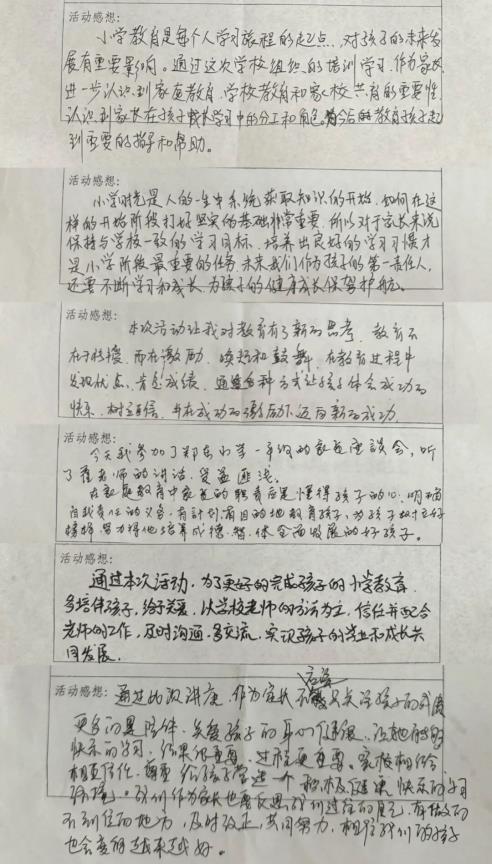 活动感想:
小学教育是每个人学习旅程的起点,对孩子的未来发
展有重要影响。通过这次学校组织的培训学习,作为家长
进一步认识到家庭教育、学校教育和家校共育的重要性,
认识到家长在孩子成长学习中的分工和角色,为今后的教育孩子起
到重要的指导和帮助。
活动感想:
小学时光是人的一生中系统获取知识的开始,如何在这
样的开始阶段打好坚实的基础非常重要,所以对于家长来说
保持与学校一致的学习目标、培养出良好的学习习惯才
是小学阶段最重要的任务,未来我们作为孩子的第一责任人,
还要不断学习和成长,为孩子的健康成长保驾护航。
活动感想:
本次活动让我对教育有了新的思考,教育不
在于传授,而在激励、唤醒和鼓舞,在教育过程中
发现优点、肯定成绩,通过各种方式让孩子体会成功的
快乐,树立自信,并在成功的激励下迈向新的成功.
活动感想:
今天我参加了郑东小学一年级的家长座谈会,听
了老师的讲话,受益匪浅。
在家庭教育中家长的职责应是懂得孩子的心,明确
自我责任的义务,有计划有目的地教育孩子,为孩子树立好
榜样,努力将他培养成德、智、体全面发展的好孩子。
活动感想:
通过本次活动,为了更好的完成孩子的小学教育,
多陪伴孩子,给予关爱,以学校老师的方法为主,信任并配合
老师的工作,及时沟通,多交流,实现孩子的学业和成长共
同发展.
活动感想:通过此次讲座,作为家长不应只关学孩子的成绩
更多的是陪伴、关爱孩子的身心健康,让她能够
快乐的学习,结果很重要,过程更重要。家校相结合,
相互信任,给孩子营造一个积极健康、快乐的学习
环境。我们作为家长也要反思我们过往的自己,有做的
不到位的地方,及时改正,共同努力,相信我们的孩子
也会变得越来越好。